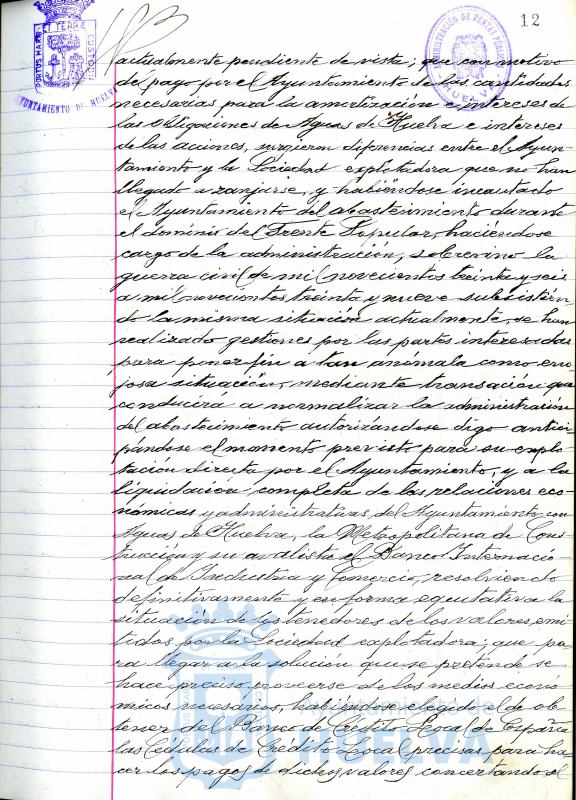 12
PORTUS MARIS ET TERRAE CUSTODIA
AYUNTAMIENTO DE HUELVA
ADMINISTRACIÓN DE RENTAS PÚBLICAS
HUELVA
actualmente pendiente de vista; que con motivo
de pago por el Ayuntamiento de las cantidades
necesarias para la amortización e intereses de
las obligaciones de Aguas de Huelva e intereses
de las acciones, surgieron diferencias entre el Ayun-
tamiento y la Sociedad explotadora que no han
llegado a zanjarse, y habiéndose incautado
el Ayuntamiento del abastecimiento durante
el dominio del Frente Popular, haciéndose
cargo de la administración, sobrevino la
guerra civil de mil novecientos treinta y seis
a mil novecientos treinta y nueve subsistien-
do la misma situación actualmente, se han
realizado gestiones por las partes interesadas
para poner fin a tan anómala como eno-
josa situación, mediante transación que
conducirá a normalizar la administración
del abastecimiento autorizándose digo antici-
pándose el momento previsto para su explo-
tación directa por el Ayuntamiento, y a la
liquidación completa de las relaciones eco-
nómicas y administrativas del Ayuntamiento con
Aguas de Huelva, la Metropolitana de Cons-
trucción y su avalista el Banco Internacio-
nal de Industria y Comercio, resolviendo
definitivamente y en forma equitativa la
situación de los tenedores de los valores emi-
tidos por la Sociedad explotadora; que pa-
ra llegar a la solución que se pretende se
hace preciso proveerse de los medios econó-
micos necesarios, habiéndose elegido el de ob-
tener del Banco de Crédito Local de España
las Cédulas de Crédito Local precisas para ha-
cer los pagos de dichos valores concertando el
Ayuntamiento de
HUELVA